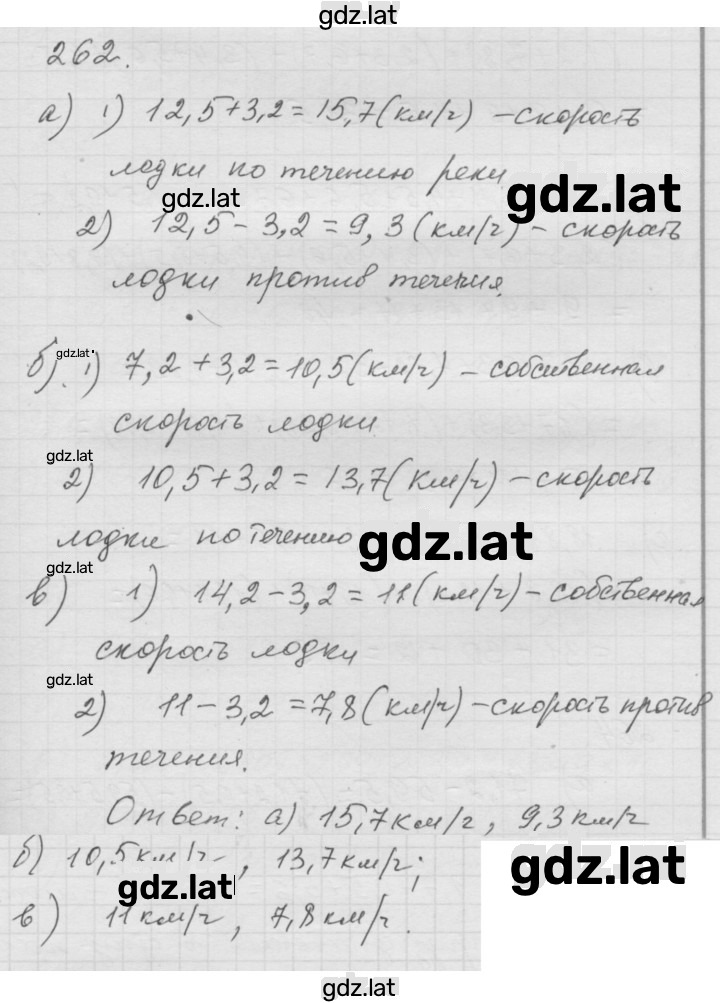 gdz.lat
262.
а) 1) 12,5+3,2=15,7(км/ч) -скорость
лодки по течению реки
gdz.lat
gdz.lat
2) 12,5-3,2=9,3(км/ч)-скорость
лодки против течения.
б) gdz.lat 1) 7,2+3,2=10,5(км/ч)-собственная
скорость лодки
gdz.lat
2) 10,5+3,2=13,7(км/ч)-скорость
лодки по течению
gdz.lat
gdz.lat
в) 1) 14,2-3,2=11(км/ч)-собственная
скорость лодки
gdz.lat
2) 11-3,2=7,8(км/ч)-скорость против
течения.
Ответ: а) 15,7км/ч, 9,3км/ч
б) 10,5км/ч, 13,7км/ч;
gdz.lat
gdz.lat
в) 11км/ч, 7,8км/ч.
gdz.lat